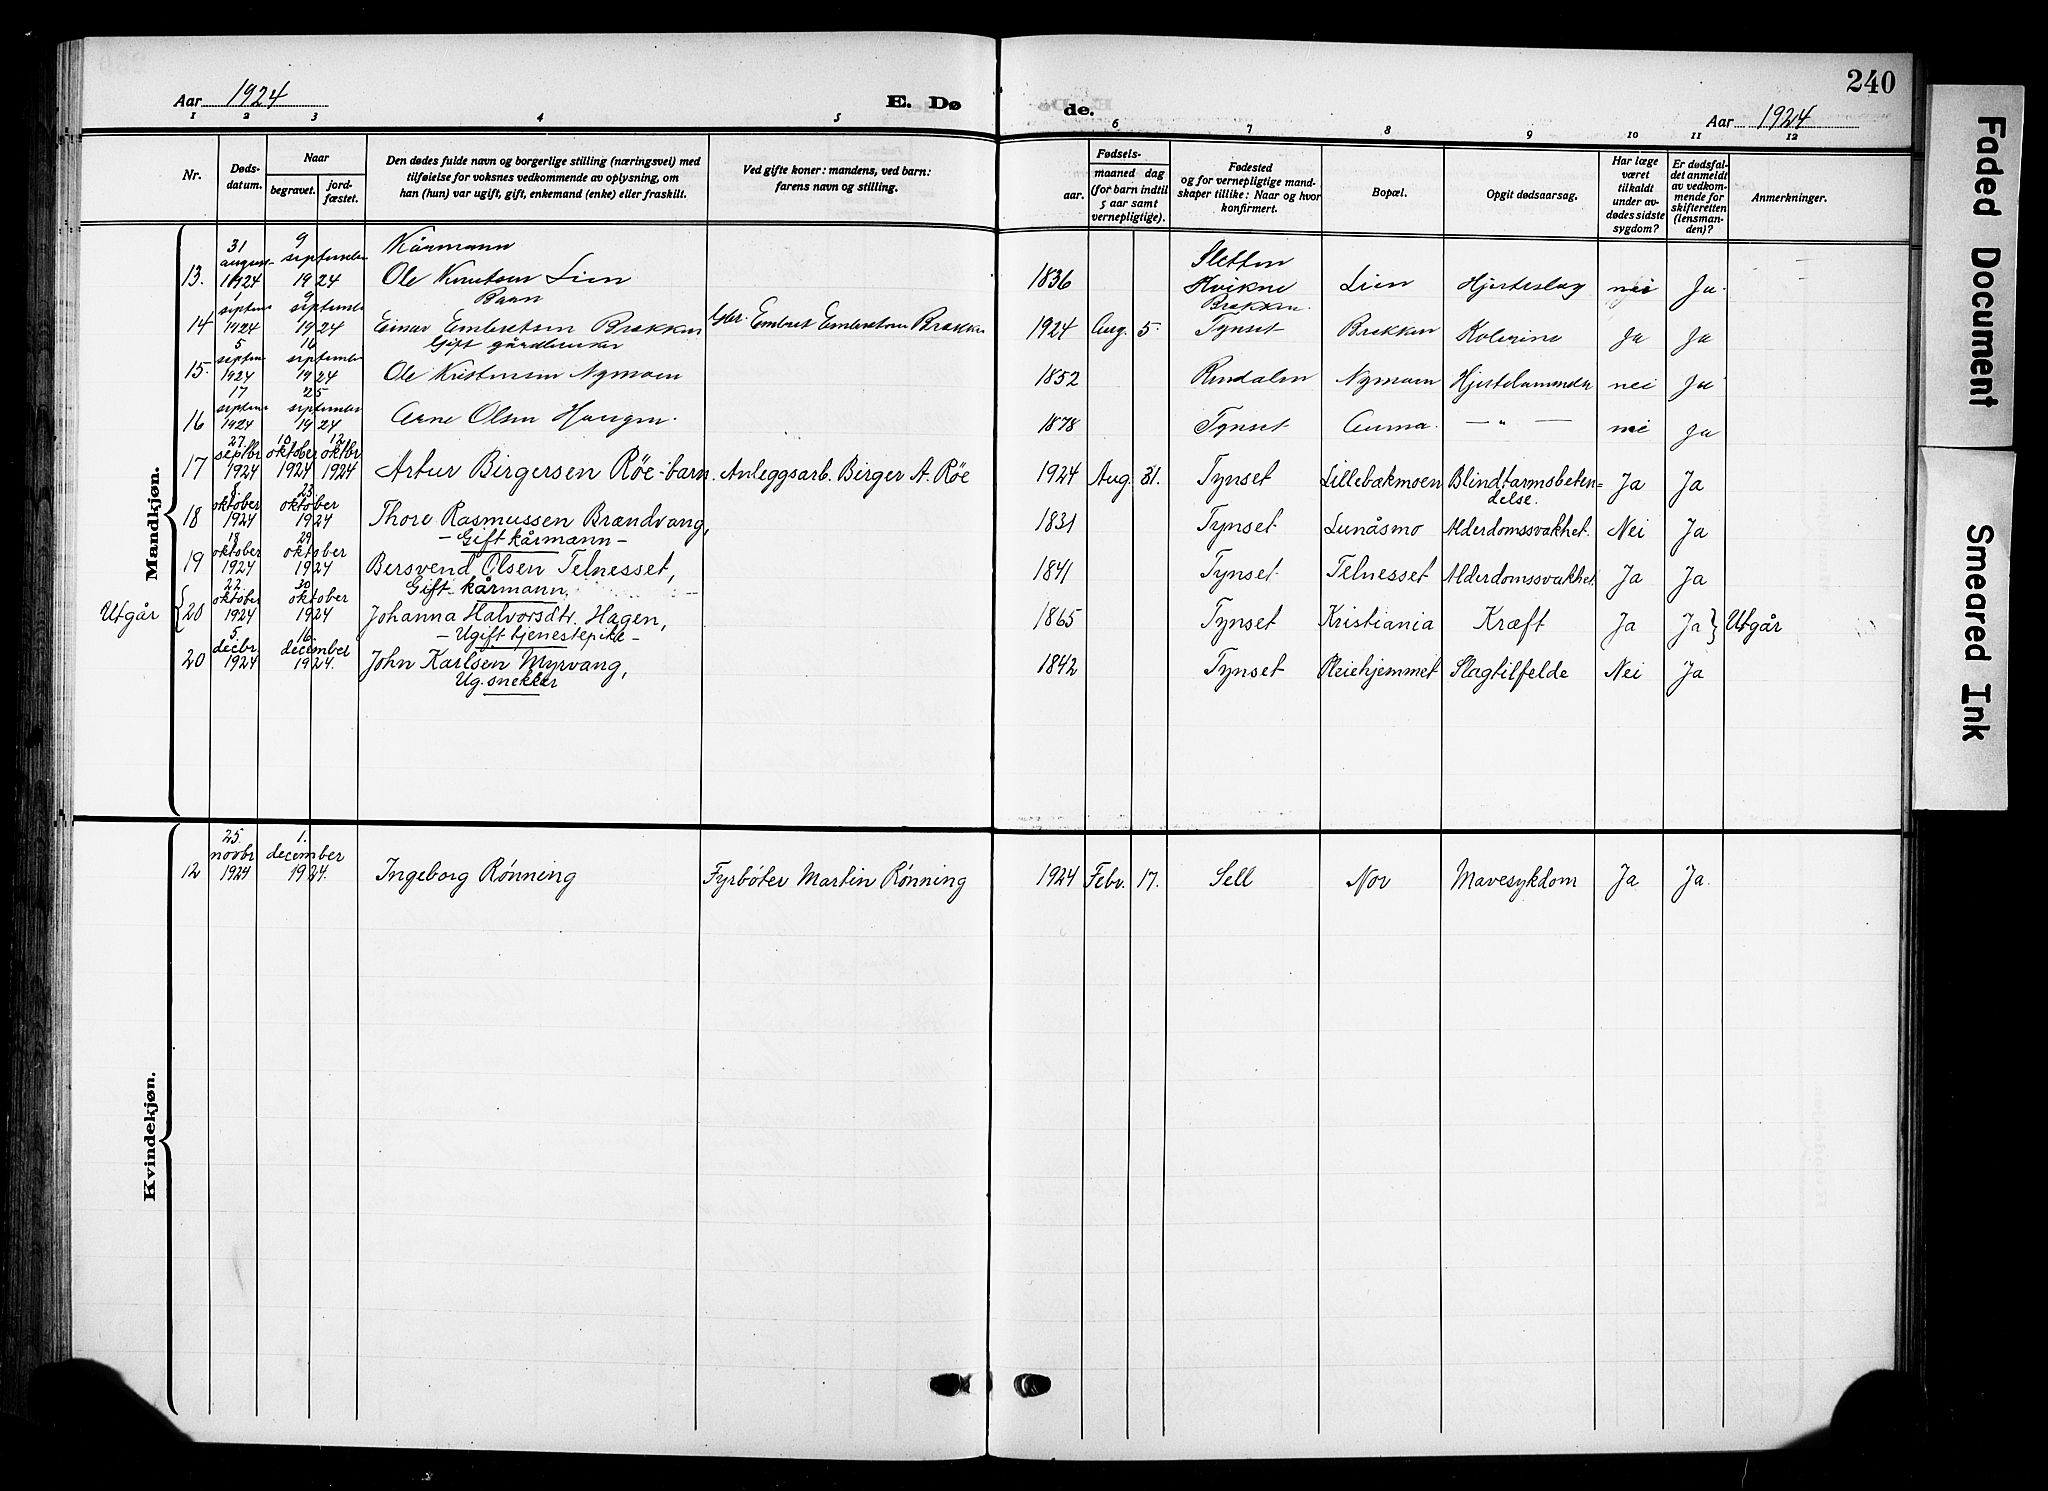 240
Aar 1924
E. Dø
de.
Aar 1924
1 2 3 4 5 6 7 8 9 10 11 12
Nr.
Døds-
datum.
Naar
begravet.
jord-
fæstet.
Den dødes fulde navn og borgerlige stilling (næringsvei) med
tilføielse for voksnes vedkommende av oplysning, om
han (hun) var ugift, gift, enkemand (enke) eller fraskilt.
Ved gifte koner: mandens, ved barn:
farens navn og stilling.
Fødsels-
aar.
maaned dag
(for barn indtil
5 aar samt
vernepligtige).
Fødested
og for vernepligtige mand-
skaper tillike: Naar og hvor
konfirmert.
Bopæl.
Opgit dødsaarsag.
Har læge
været
tilkaldt
under av-
dødes sidste
sygdom?
Er dødsfal-
det anmeldt
av vedkom-
mende for
skifteretten
(lensman-
den)?
Anmerkninger.
Mandkjøn.
31 9 Kårmann Sletten
august september
13. 1924 1924 Ole Knutsen Lien 1836 Hvikne Lien Hjerteslag nei Ja.
1 9 Barn Brekken
septem september
14 1924 1924 Einar Embretsen Brekken Gbr. Embret Embretsen Brekken 1924 Aug. 5. Tynset Brekken Kolerine Ja Ja
5 16 Gift gårdbruker
septem september
15. 1924 1924 Ole Kristensen Nymoen 1852 Rendalen Nymoen Hjertelammelse nei Ja
17 25
septem september
16 1924 1924 Arne Olsen Haugen. 1878 Tynset Auma. — " — nei Ja
27. 10 12.
septbr oktober oktbr
17 1924 1924 1924 Artur Birgersen Røe - barn. Anleggsarb. Birger A. Røe 1924 Aug. 31. Tynset Lillebækmoen Blindtarmsbeten-
delse. Ja Ja
8 23
oktober oktober
18 1924 1924 Thore Rasmussen Brændvang, 1831 Tynset Lunåsmo Alderdomssvakhet. Nei Ja
18 29 - Gift kårmann -
oktober oktober
19 1924 1924 Bersvend Olsen Telnesset, 1841 Tynset Telnesset Alderdomssvakhet Ja Ja
22 30 Gift kårmann.
oktober oktober
Utgår { 20 1924 1924 Johanna Halvorsdtr. Hagen, 1865 Tynset Kristiania Kræft Ja Ja } Utgår
5. 16. - Ugift tjenestepike -
decbr december
20 1924 1924. John Karlsen Myrvang, 1842 Tynset Pleiehjemmet Slagtilfelde Nei Ja
Ug. snekker
Kvindekjøn.
25. 1.
novbr december
12 1924 1924. Ingeborg Rønning Fyrbøter Martin Rønning 1924 Febr. 17. Sell Nov Mavesykdom Ja Ja.
Faded Document
Smeared Ink